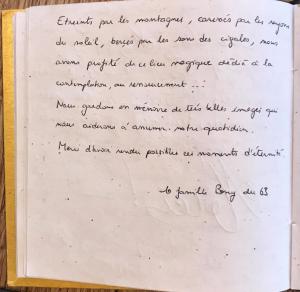 Etreints par les montagnes, caressés par les rayons
du soleil, bercés par les sons des cigales, nous
avons profité de ce lieu magique dédié à la
contemplation, au ressourcement ...
Nous gardons en mémoire de très belles images qui
nous aiderons à assumer notre quotidien.
Merci d'avoir rendu possibles ces moments d'éternité.
la famille du 63